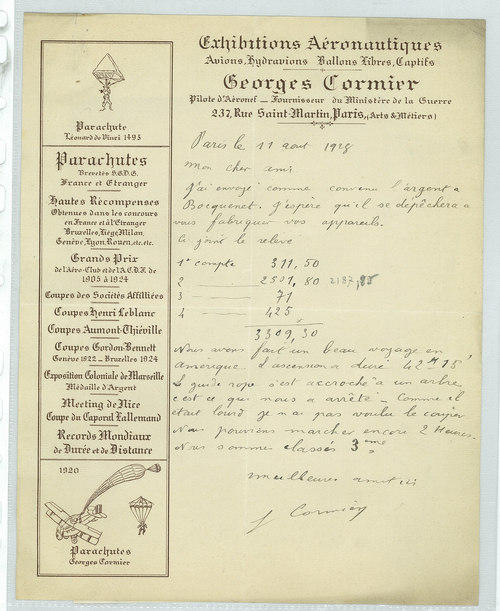 Exhibitions Aéronautiques
Avions, Hydravions Ballons Libres, Captifs
Georges Cormier
Pilote d'Aéronef — Fournisseur du Ministère de la Guerre
237, Rue Saint-Martin, Paris, (Arts & Métiers)
Parachute
Léonard de Vinci 1495
Parachutes
Brevetés S.G.D.G.
France et Etranger
Hautes Récompenses
Obtenues dans les concours
en France et à l'Etranger
Bruxelles, Liège, Milan,
Genève, Lyon, Rouen, etc. etc.
Grands Prix
de l'Aéro-Club et de l'A.C.D.F. de
1905 à 1924
Coupes des Sociétés Affiliées
Coupes Henri Leblanc
Coupes Aumont-Thiéville
Coupes Gordon-Bennett
Genève 1922 — Bruxelles 1924
Exposition Coloniale de Marseille
Médaille d'Argent
Meeting de Nice
Coupe du Caporal Lallemand
Records Mondiaux
de Durée et de Distance
1920
Parachutes
Georges Cormier
Paris le 11 aout 1928
Mon cher ami
J'ai envoyé comme convenu l'argent a
Bocquenet. J'espère qu'il se dépêchera a
vous fabriquer vos appareils.
Ci joint le relevé
1er compte 311,50
2 — 2501,80 2187,85
3 — 71
4 — 425
3309,30
Nous avons fait un beau voyage en
amerique l'ascension a duré 42 H 15'
Le guide rope s'est accroché a un arbre,
c'est ce qui nous a arrêté — Comme il
etait lourd je n'ai pas voulu le couper.
Nous pouvions marcher encore 2 Heures.
Nous somme classés 3eme
meilleures amitiés
G Cormier